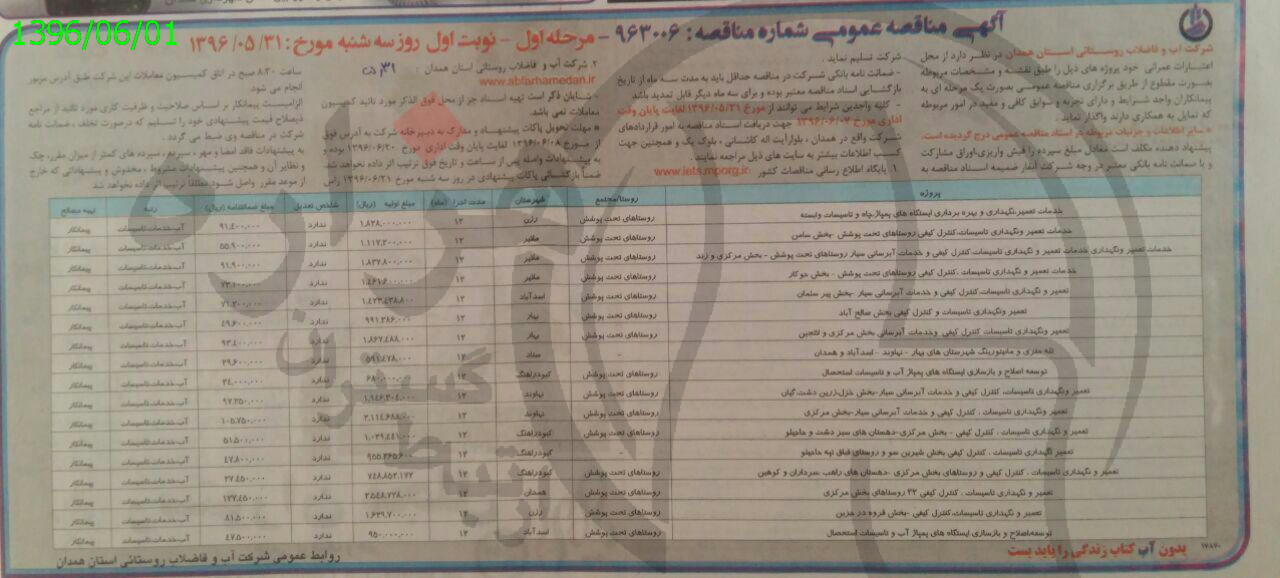 1396/06/01
آگهی مناقصه عمومی شماره مناقصه: ۹۶۳۰۰۶ - مرحله اول - نوبت اول روز سه شنبه مورخ: ۱۳۹۶/۰۵/۳۱
شرکت آب و فاضلاب روستائی استان همدان در نظر دارد از محل
اعتبارات عمرانی خود پروژه های ذیل را طبق نقشه و مشخصات مربوطه
بصورت مقطوع از طریق برگزاری مناقصه عمومی بصورت یک مرحله ای به
پیمانکاران واجد شرایط و دارای تجربه و سوابق کافی و مفید در امور مربوطه
که تمایل به همکاری دارند واگذار نماید.
* سایر اطلاعات و جزئیات مربوطه در اسناد مناقصه عمومی درج گردیده است.
پیشنهاد دهنده مکلف است معادل مبلغ سپرده را فیش واریزی، اوراق مشارکت
و یا ضمانت نامه بانکی معتبر در وجه شرکت آبفار ضمیمه اسناد مناقصه به
شرکت تسلیم نماید.
- ضمانت نامه بانکی شرکت در مناقصه حداقل باید به مدت سه ماه از تاریخ
بازگشایی اسناد مناقصه معتبر بوده و برای سه ماه دیگر قابل تمدید باشد
- کلیه واجدین شرایط می توانند از مورخ ۱۳۹۶/۰۵/۳۱ لغایت پایان وقت
اداری مورخ ۱۳۹۶/۰۶/۰۷ جهت دریافت اسناد مناقصه به امور قراردادهای
شرکت واقع در همدان، بلوار آیت اله کاشانی، بلوک یک و همچنین جهت
کسب اطلاعات بیشتر به سایت های ذیل مراجعه نمایند.
۱. پایگاه اطلاع رسانی مناقصات کشور www.iets.mporg.ir
۲. شرکت آب و فاضلاب روستائی استان همدان:
www.abfarhamedan.ir
- شایان ذکر است تهیه اسناد جز از محل فوق الذکر مورد تائید کمیسیون
معاملات نمی باشد.
* مهلت تحویل پاکات پیشنهاد و مدارک به دبیرخانه شرکت به آدرس فوق
از مورخ ۱۳۹۶/۰۶/۰۸ لغایت پایان وقت اداری مورخ ۱۳۹۶/۰۶/۲۰ بوده و
به پیشنهادات واصله پس از ساعت و تاریخ فوق ترتیب اثر داده نخواهد شد.
ضمناً بازگشائی پاکات پیشنهادی در روز سه شنبه مورخ ۱۳۹۶/۰۶/۲۱ راس
ساعت ۸:۳۰ صبح در اتاق کمیسیون معاملات این شرکت طبق آدرس مزبور
انجام می شود.
الزامیست پیمانکار بر اساس صلاحیت و ظرفیت کاری مورد تائید از مراجع
ذیصلاح قیمت پیشنهادی خود را تسلیم که درصورت تخلف، ضمانت نامه
شرکت در مناقصه وی ضبط می گردد.
به پیشنهادات فاقد امضا و مهر، سپرده، سپرده های کمتر از میزان مقرر، چک
و نظایر آن و همچنین پیشنهادات مشروط، مخدوش و پیشنهاداتی که خارج
از موعد مقرر واصل شود مطلقا ترتیب اثر داده نخواهد شد.
پروژه روستا/مجتمع شهرستان مدت اجرا (ماه) مبلغ اولیه (ریال) شاخص تعدیل مبلغ ضمانتنامه (ریال) رشته تهیه مصالح
خدمات تعمیر، نگهداری و بهره برداری ایستگاه های پمپاژ، چاه و تاسیسات وابسته روستاهای تحت پوشش رزن ۱۲ ۱.۸۲۸.۰۰۰.۰۰۰ ندارد ۹۱.۴۰۰.۰۰۰ آب-خدمات-تاسیسات پیمانکار
خدمات تعمیر ونگهداری تاسیسات، کنترل کیفی روستاهای تحت پوشش -بخش سامن روستاهای تحت پوشش ملایر ۱۲ ۱.۱۱۷.۲۰۰.۰۰۰ ندارد ۵۵.۹۰۰.۰۰۰ آب-خدمات-تاسیسات پیمانکار
خدمات تعمیر ونگهداری خدمات تعمیر و نگهداری تاسیسات، کنترل کیفی و خدمات آبرسانی سیار روستاهای تحت پوشش - بخش مرکزی و زند روستاهای تحت پوشش ملایر ۱۲ ۱.۸۳۷.۸۰۰.۰۰۰ ندارد ۹۱.۹۰۰.۰۰۰ آب-خدمات-تاسیسات پیمانکار
خدمات تعمیر و نگهداری تاسیسات، کنترل کیفی روستاهای تحت پوشش - بخش جوکار روستاهای تحت پوشش ملایر ۱۲ ۱.۴۶۱.۶۰۰.۰۰۰ ندارد ۷۳.۱۰۰.۰۰۰ آب-خدمات-تاسیسات پیمانکار
تعمیر و نگهداری تاسیسات، کنترل کیفی و خدمات آبرسانی سیار -بخش پیر سلمان روستاهای تحت پوشش اسدآباد ۱۲ ۱.۴۲۳.۴۳۸.۸۰۰ ندارد ۷۱.۲۰۰.۰۰۰ آب-خدمات-تاسیسات پیمانکار
تعمیر ونگهداری تاسیسات و کنترل کیفی بخش صالح آباد روستاهای تحت پوشش بهار ۱۲ ۹۹۱.۲۸۶.۰۰۰ ندارد ۴۹.۶۰۰.۰۰۰ آب-خدمات-تاسیسات پیمانکار
تعمیر ونگهداری تاسیسات کنترل کیفی وخدمات آبرسانی بخش مرکزی و لالجین روستاهای تحت پوشش بهار ۱۲ ۱.۸۶۷.۴۸۸.۰۰۰ ندارد ۹۳.۴۰۰.۰۰۰ آب-خدمات-تاسیسات پیمانکار
تله متری و مانیتورینگ شهرستان های بهار - نهاوند - اسدآباد و همدان - ستاد ۱۲ ۵۹۱.۴۷۸.۰۰۰ ندارد ۲۹.۶۰۰.۰۰۰ آب-خدمات-تاسیسات پیمانکار
توسعه اصلاح و بازسازی ایستگاه های پمپاژ آب و تاسیسات استحصال روستاهای تحت پوشش کبودراهنگ ۱۲ ۶۸۰.۰۰۰.۰۰۰ ندارد ۳۴.۰۰۰.۰۰۰ آب-خدمات-تاسیسات پیمانکار
تعمیر ونگهداری تاسیسات، کنترل کیفی و خدمات آبرسانی سیار-بخش خزل، زرین دشت، گیان روستاهای تحت پوشش نهاوند ۱۲ ۱.۹۴۶.۳۰۴.۰۰۰ ندارد ۹۷.۳۵۰.۰۰۰ آب-خدمات-تاسیسات پیمانکار
تعمیر و نگهداری تاسیسات، کنترل کیفی و خدمات آبرسانی سیار-بخش مرکزی روستاهای تحت پوشش نهاوند ۱۲ ۲.۱۱۴.۶۸۸.۰۰۰ ندارد ۱۰۵.۷۵۰.۰۰۰ آب-خدمات-تاسیسات پیمانکار
تعمیر و نگهداری تاسیسات، کنترل کیفی - بخش مرکزی-دهستان های سبز دشت و حاجیلو روستاهای تحت پوشش کبودراهنگ ۱۲ ۱.۰۲۹.۴۴۱.۰۰۰ ندارد ۵۱.۵۰۰.۰۰۰ آب-خدمات-تاسیسات پیمانکار
تعمیر نگهداری تاسیسات، کنترل کیفی بخش شیرین سو و روستای قباق تپه حاجیلو کبودراهنگ ۱۲ ندارد ۴۷.۸۰۰.۰۰۰ آب-خدمات-تاسیسات پیمانکار
تعمیر و نگهداری تاسیسات، کنترل کیفی و روستاهای بخش مرکزی -دهستان های راهب، سرداران و کوهین روستاهای تحت پوشش کبودراهنگ ۱۲ ۷۴۸.۸۵۲.۱۷۲ ندارد ۳۷.۴۵۰.۰۰۰ آب-خدمات-تاسیسات پیمانکار
تعمیر و نگهداری تاسیسات، کنترل کیفی ۳۲ روستاهای بخش مرکزی روستاهای تحت پوشش همدان ۱۲ ۲.۵۴۸.۷۲۸.۰۰۰ ندارد ۱۲۷.۴۵۰.۰۰۰ آب-خدمات-تاسیسات پیمانکار
تعمیر و نگهداری تاسیسات، کنترل کیفی -بخش قروه در جزین روستاهای تحت پوشش رزن ۱۲ ۱.۶۲۹.۷۰۰.۰۰۰ ندارد ۸۱.۵۰۰.۰۰۰ آب-خدمات-تاسیسات پیمانکار
توسعه، اصلاح و بازسازی ایستگاه های پمپاژ آب و تاسیسات استحصال روستاهای تحت پوشش اسدآباد ۱۲ ۹۵۰.۰۰۰.۰۰۰ ندارد ۴۷.۵۰۰.۰۰۰ آب-خدمات-تاسیسات پیمانکار
بدون آب کتاب زندگی را باید بست
روابط عمومی شرکت آب و فاضلاب روستائی استان همدان